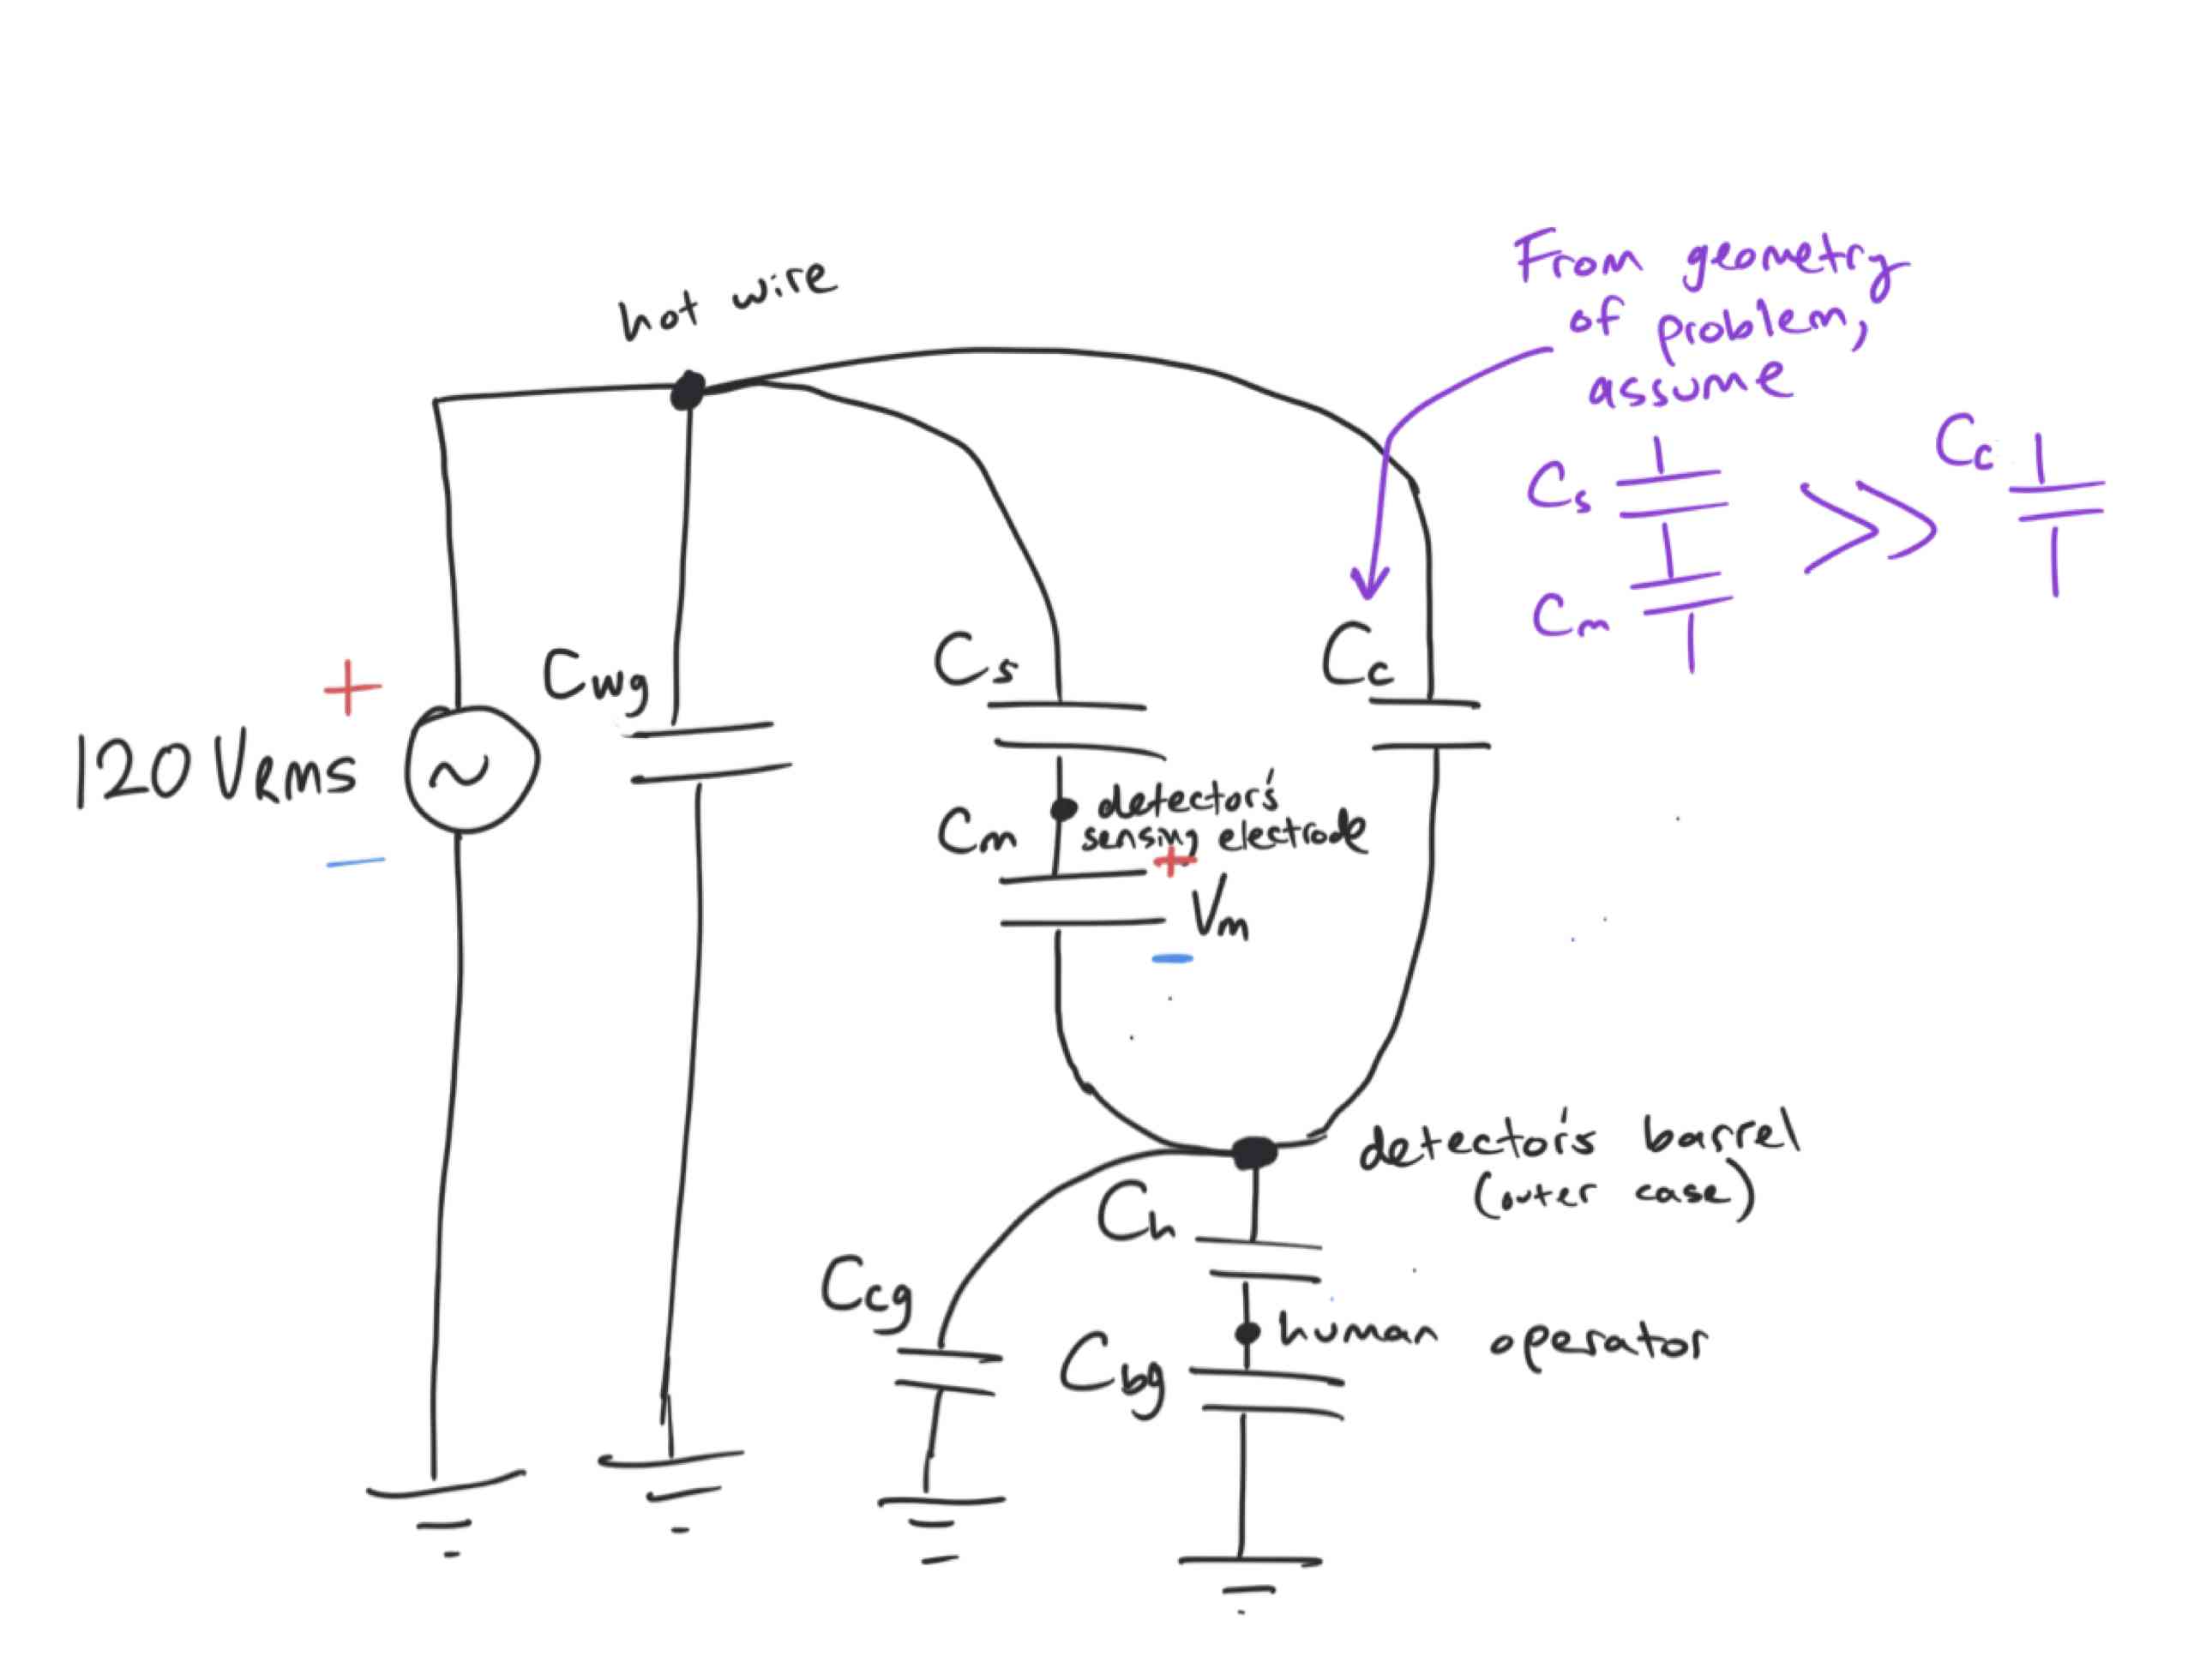 hot wire
From geometry
of problem,
assume
Cs
Cm
>>
Cc
+
120 VRMS
~
−
Cwg
Cs
Cc
Cm
detector's
sensing electrode
+
Vm
−
detector's barrel
(outer case)
Ch
Ccg
human operator
Cbg